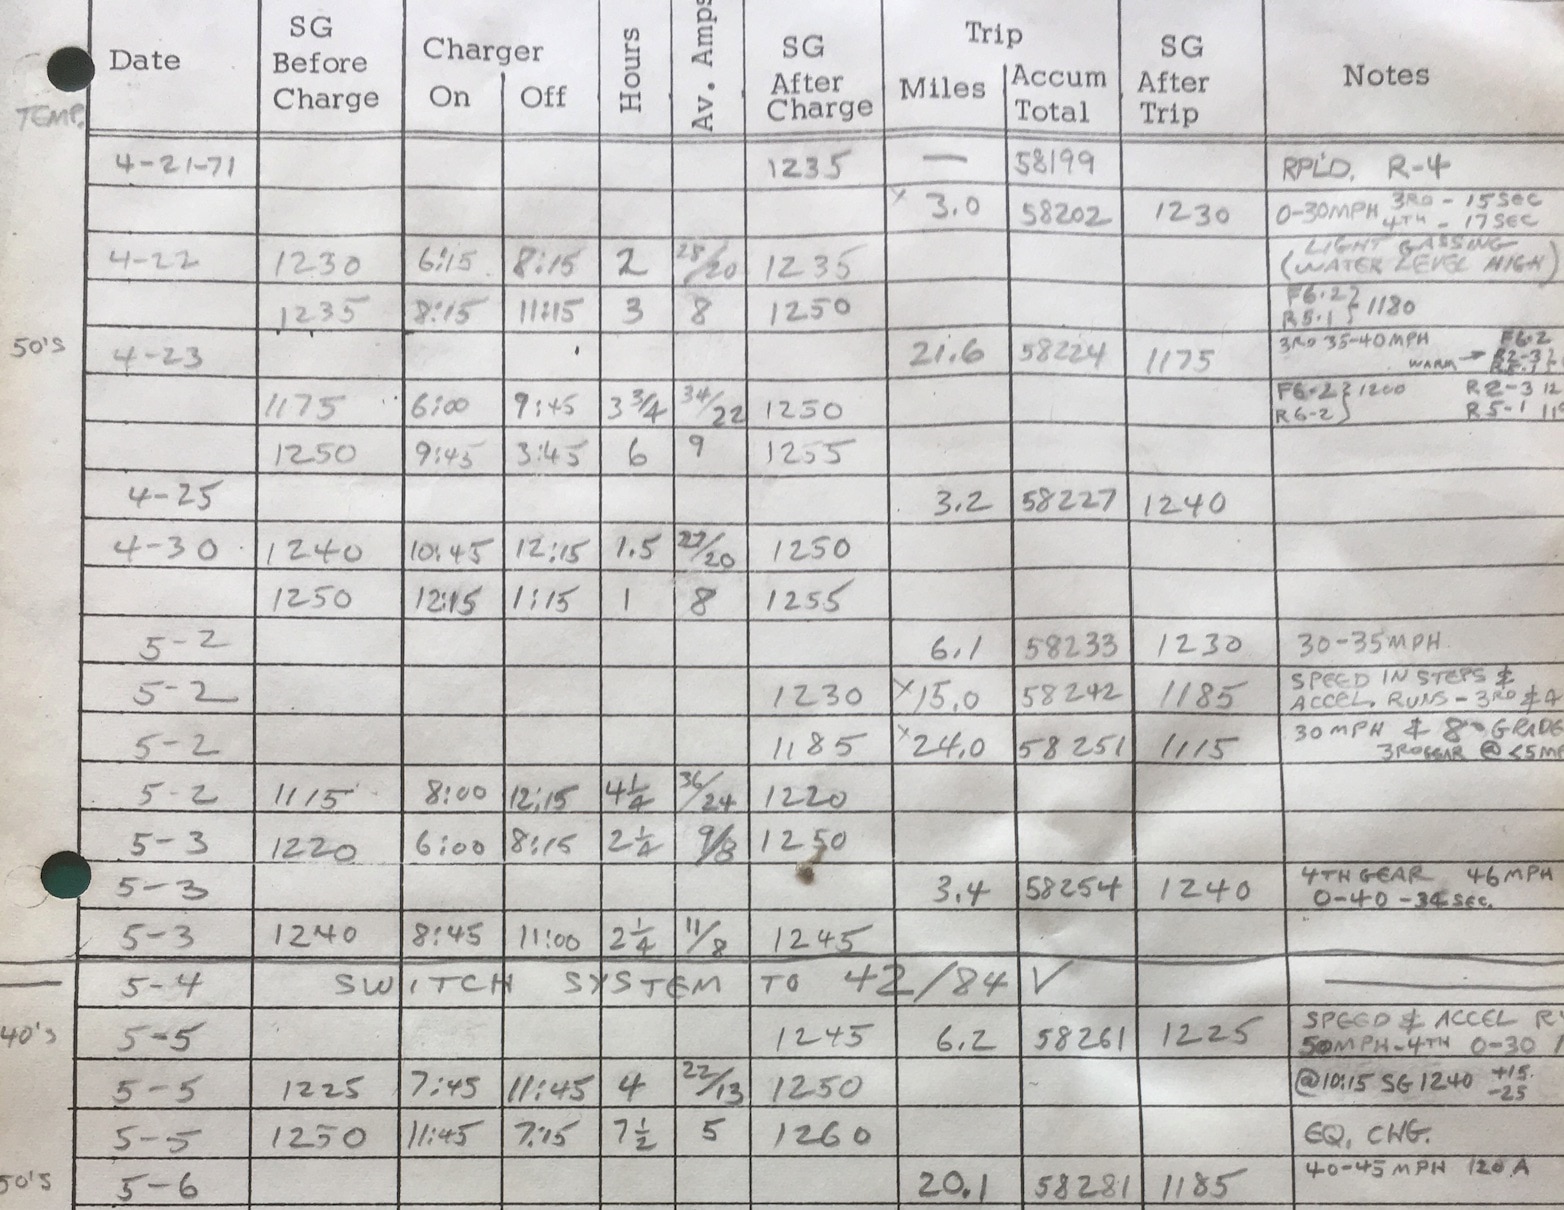 Date SG Before Charge Charger On Off Hours Av. Amps SG After Charge Trip Miles Accum Total SG After Trip Notes
TEMP.
4-21-71 1235 — 58199 RPL'D. R-4
x 3.0 58202 1230 0-30MPH 3RD - 15SEC 4TH - 17SEC
4-22 1230 6:15 8:15 2 28/20 1235 LIGHT GASSING (WATER LEVEL HIGH)
1235 8:15 11:15 3 8 1250 F6-2 R5-1 } 1180
50'S 4-23 21.6 58224 1175 3RD 35-40MPH WARM → F6-2 R2-3
1175 6:00 9:45 3 3/4 34/22 1250 F6-2 R6-2 } 1200 R2-3 12 R5-1 11
1250 9:45 3:45 6 9 1255
4-25 3.2 58227 1240
4-30 1240 10:45 12:15 1.5 /20 1250
1250 12:15 1:15 1 8 1255
5-2 6.1 58233 1230 30-35MPH
5-2 1230 x 15.0 58242 1185 SPEED IN STEPS & ACCEL. RUNS - 3RD & 4
5-2 1185 x 24.0 58251 1115 30MPH & GRADE 3RD GEAR @
5-2 1115 8:00 12:15 4 1/4 36/24 1220
5-3 1220 6:00 8:15 2 1/4 9/8 1250
5-3 3.4 58254 1240 4TH GEAR 46MPH 0-40 - SEC.
5-3 1240 8:45 11:00 2 1/4 11/8 1245
5-4 SWITCH SYSTEM TO 42/84 V
40's 5-5 1245 6.2 58261 1225 SPEED & ACCEL R 50MPH-4TH 0-30
5-5 1225 7:45 11:45 4 22/13 1250 @10:15 SG 1240 +15 -25
5-5 1250 11:45 7:15 7 1/2 5 1260 EQ. CHG.
50'S 5-6 20.1 58281 1185 40-45MPH 120 A